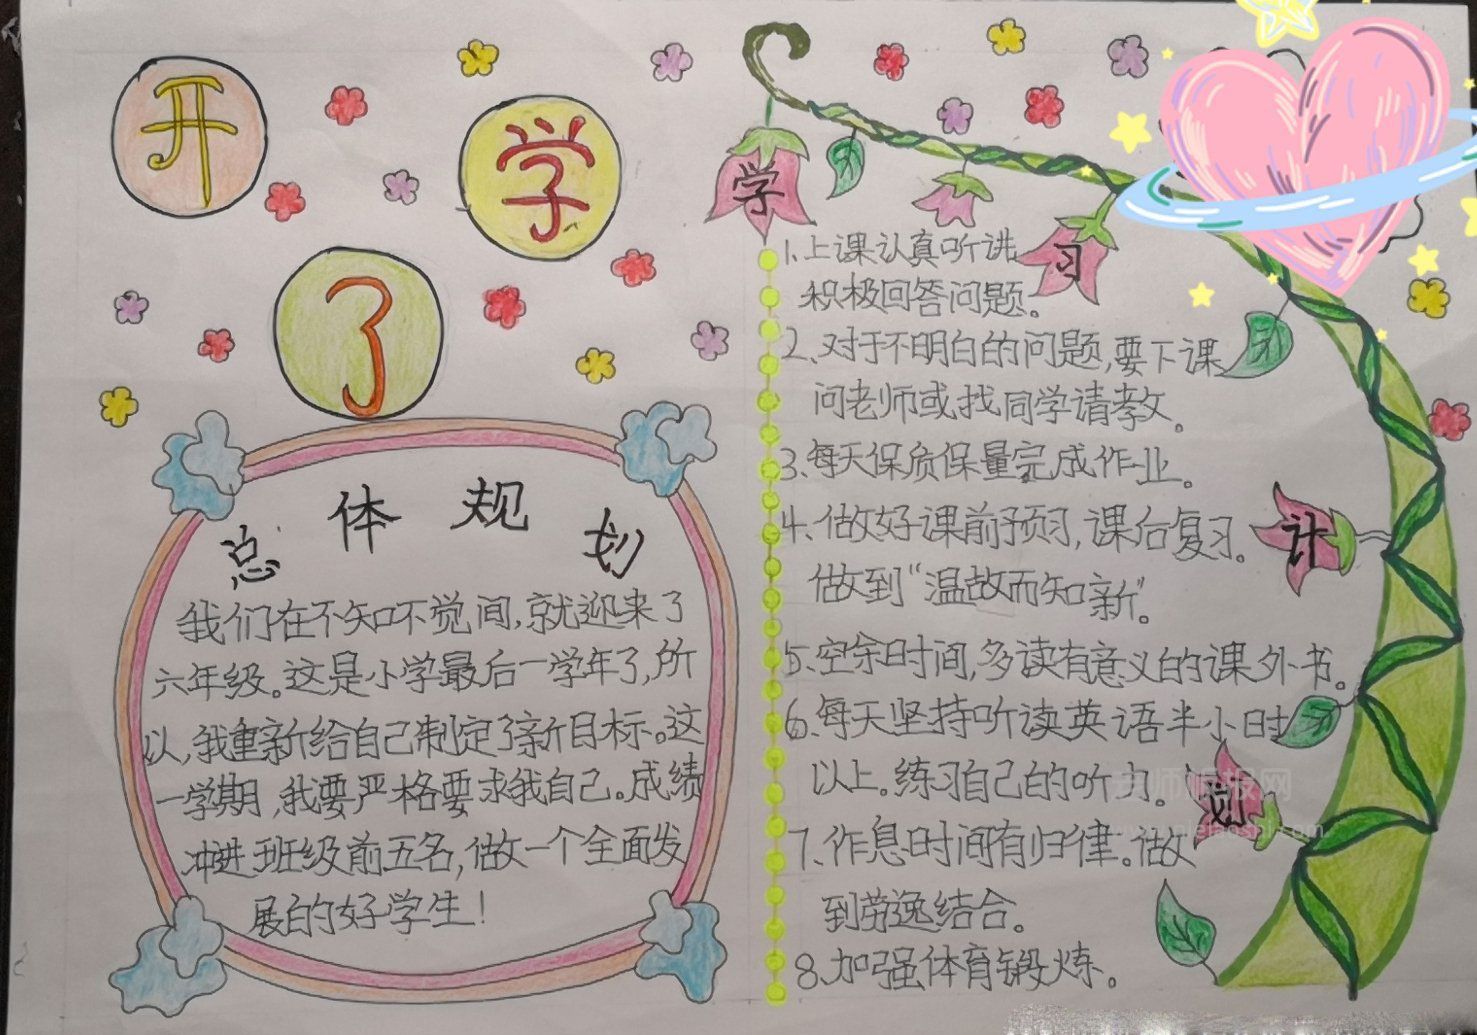 开学了
总体规划
我们在不知不觉间,就迎来了
六年级。这是小学最后一学年了,所
以,我重新给自己制定了新目标。这
一学期,我要严格要求我自己。成绩
冲进班级前五名,做一个全面发
展的好学生!
学习计划
1.上课认真听讲
积极回答问题。
2、对于不明白的问题,要下课
问老师或找同学请教。
3、每天保质保量完成作业。
4、做好课前预习,课后复习。
做到“温故而知新”。
5、空余时间,多读有意义的课外书。
6、每天坚持听读英语半小时
以上。练习自己的听力。
7、作息时间有归律。做
到劳逸结合。
8、加强体育锻炼。